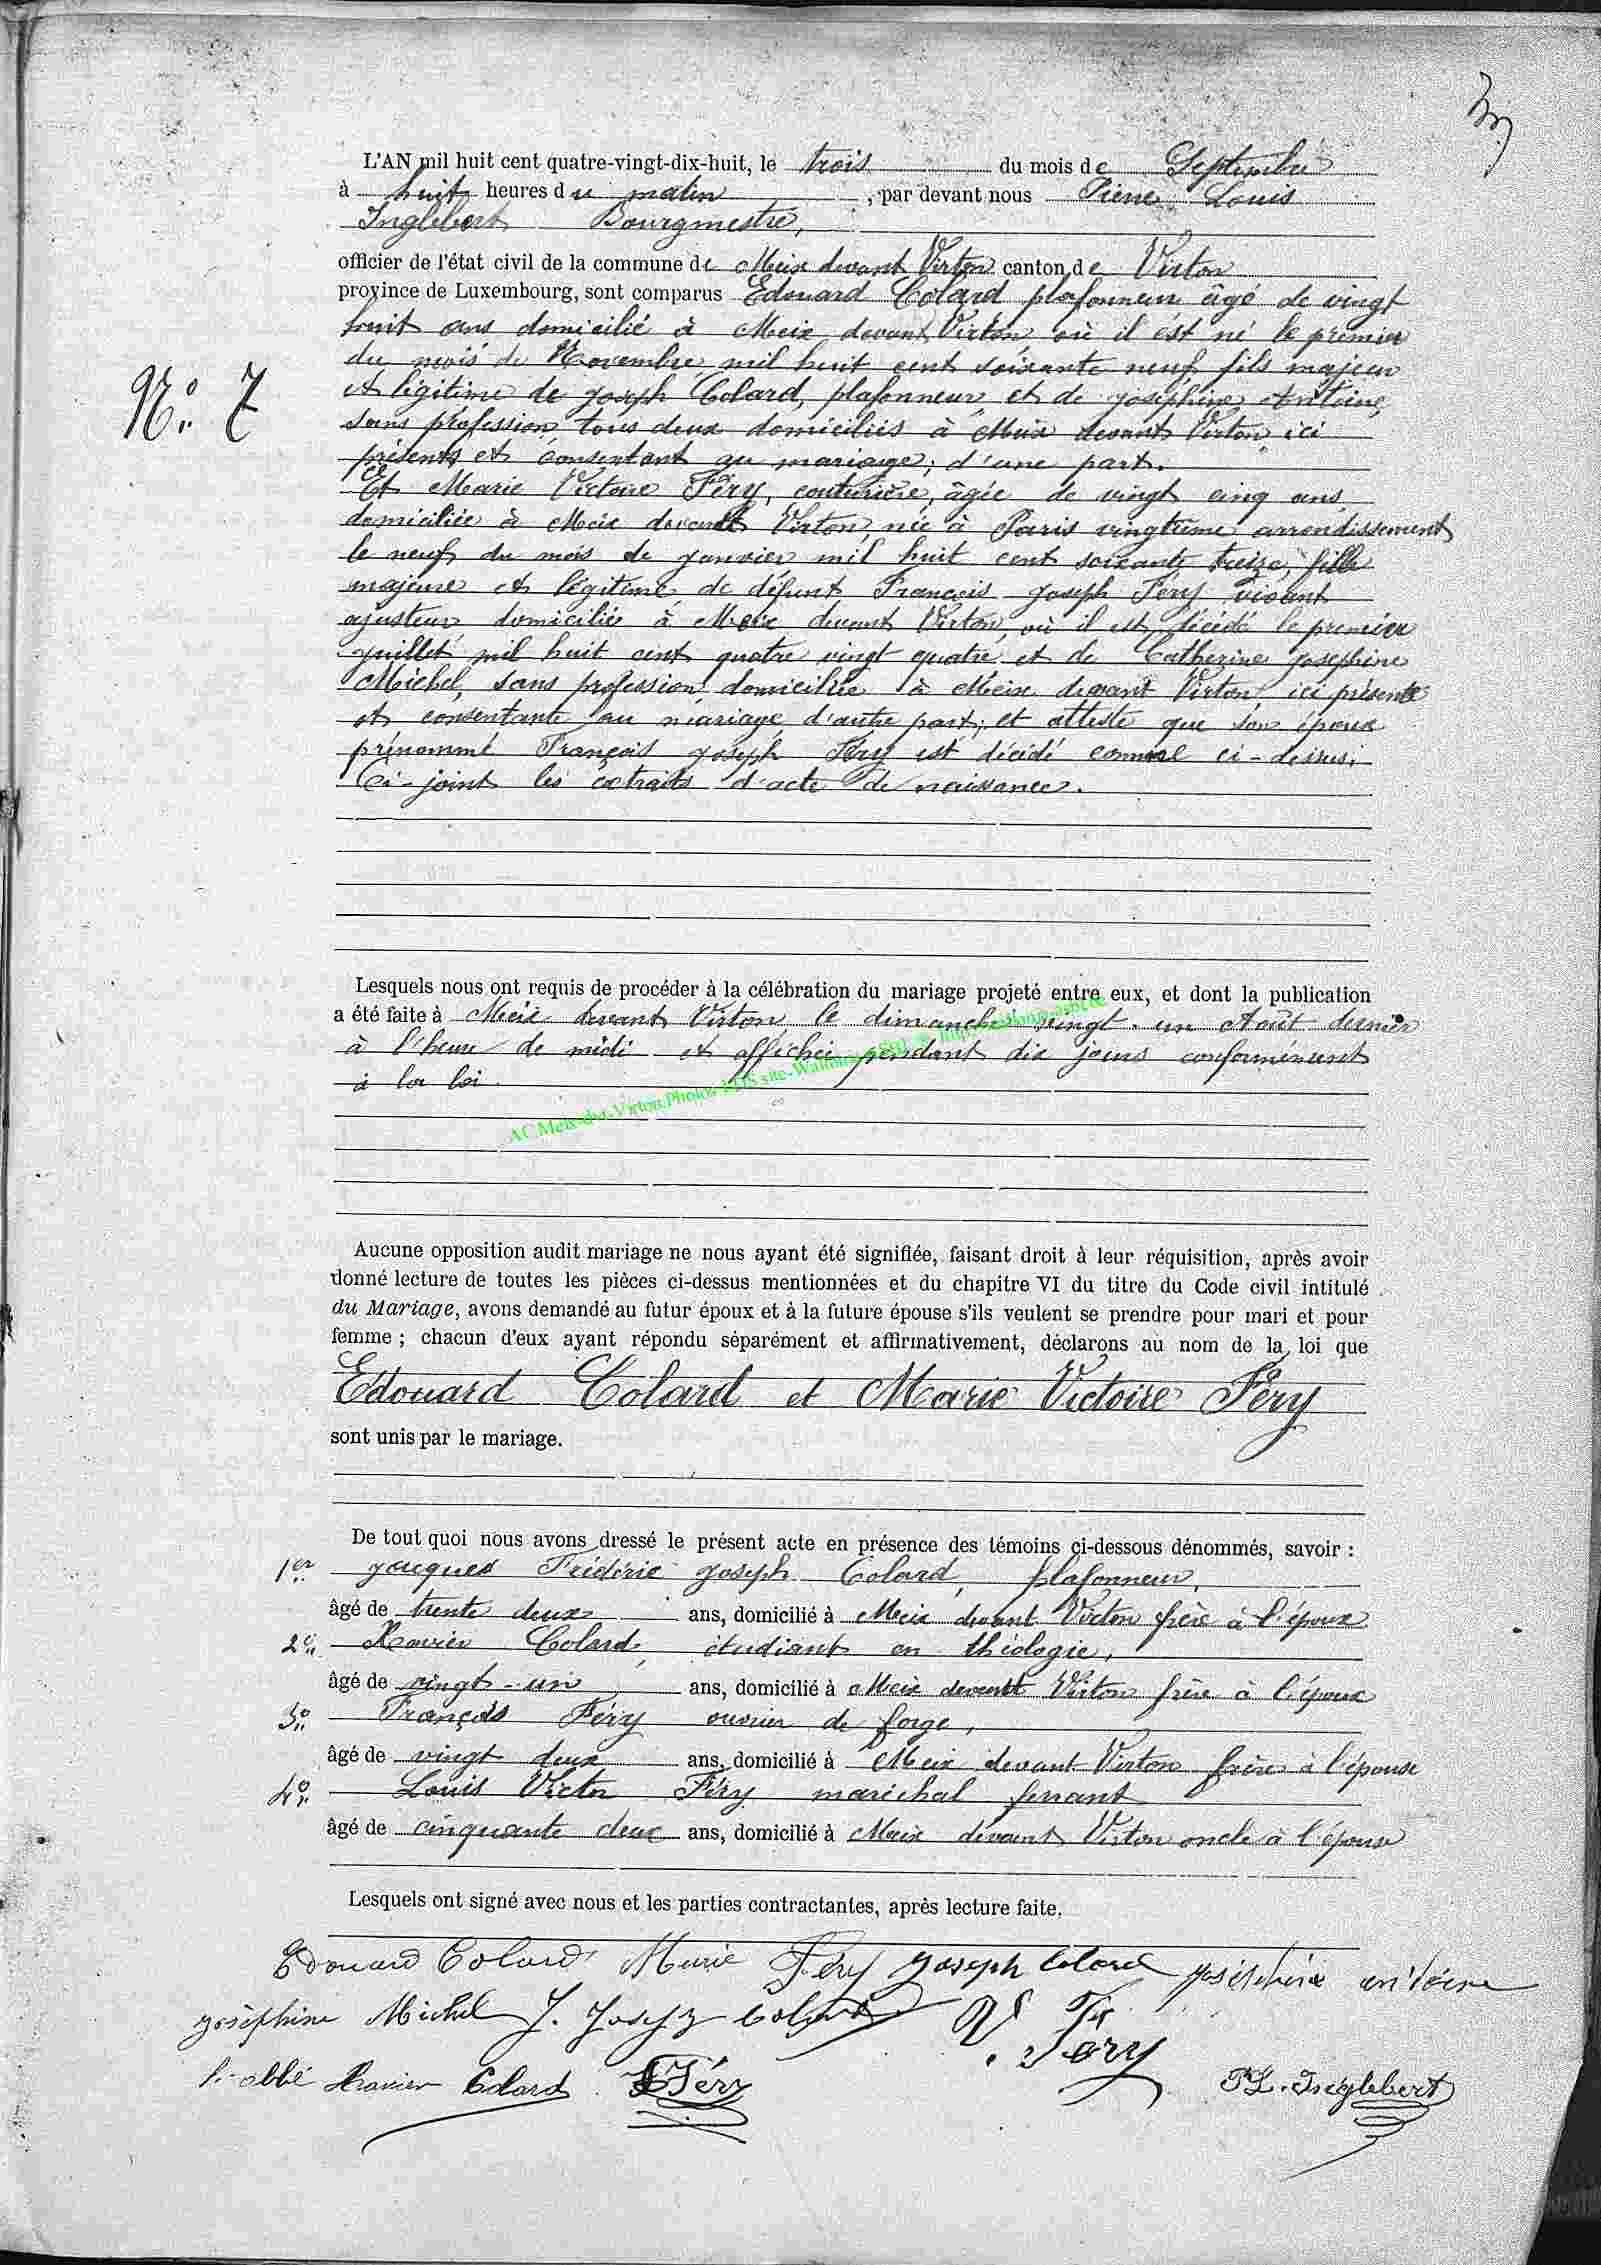 L'AN mil huit cent quatre-vingt-dix-huit, le trois du mois de Septembre
à huit heures du matin, par devant nous Pierre Louis
Inglebert Bourgmestre,
officier de l'état civil de la commune de Meix devant Virton canton de Virton
province de Luxembourg, sont comparus Edouard Colard plafonneur âgé de vingt
huit ans domicilié à Meix devant Virton, où il est né le premier
du mois de Novembre mil huit cent soixante neuf fils majeur
N° 7
et légitime de Joseph Colard, plafonneur et de Joséphine Antoine,
sans profession tous deux domiciliés à Meix devant Virton ici
présents et consentant au mariage; d'une part.
Et Marie Victoire Féry, couturière, âgée de vingt cinq ans,
domiciliée à Meix devant Virton, née à Paris vingtième arrondissement
le neuf du mois de janvier mil huit cent soixante treize, fille
majeure et légitime de défunt François Joseph Féry vivant
ajusteur domicilié à Meix devant Virton, où il est décédé le premier
juillet mil huit cent quatre vingt quatre et de Catherine Josephine
Michel, sans profession domiciliée à Meix devant Virton ici présente
et consentante au mariage d'autre part; et atteste que son époux
prénommé François Joseph Féry est décédé comme ci-dessus.
Ci-joint les extraits d'acte de naissance.
Lesquels nous ont requis de procéder à la célébration du mariage projeté entre eux, et dont la publication
a été faite à Meix devant Virton, le dimanche vingt-un Août dernier
à l'heure de midi et affichée pendant dix jours conformément
à la loi.
Aucune opposition audit mariage ne nous ayant été signifiée, faisant droit à leur réquisition, après avoir
donné lecture de toutes les pièces ci-dessus mentionnées et du chapitre VI du titre du Code civil intitulé
du Mariage, avons demandé au futur époux et à la future épouse s'ils veulent se prendre pour mari et pour
femme ; chacun d'eux ayant répondu séparément et affirmativement, déclarons au nom de la loi que
Edouard Colard et Marie Victoire Féry
sont unis par le mariage.
De tout quoi nous avons dressé le présent acte en présence des témoins ci-dessous dénommés, savoir :
1er Jacques Frédéric Joseph Colard, plafonneur,
âgé de trente deux ans, domicilié à Meix devant Virton frère à l'époux
2e Xavier Colard, étudiant en théologie,
âgé de vingt-un ans, domicilié à Meix devant Virton frère à l'époux
3° François Féry ouvrier de forge,
âgé de vingt deux ans, domicilié à Meix devant Virton frère à l'épouse
4° Louis Victor Féry maréchal ferrant
âgé de cinquante deux ans, domicilié à Meix devant Virton oncle à l'épouse
Lesquels ont signé avec nous et les parties contractantes, après lecture faite.
Edouard Colard Marie Féry Joseph Colard Joséphine antoine
Joséphine Michel J. Joseph Colard V. Féry
l'abbé Xavier Colard F Féry P L. Inglebert